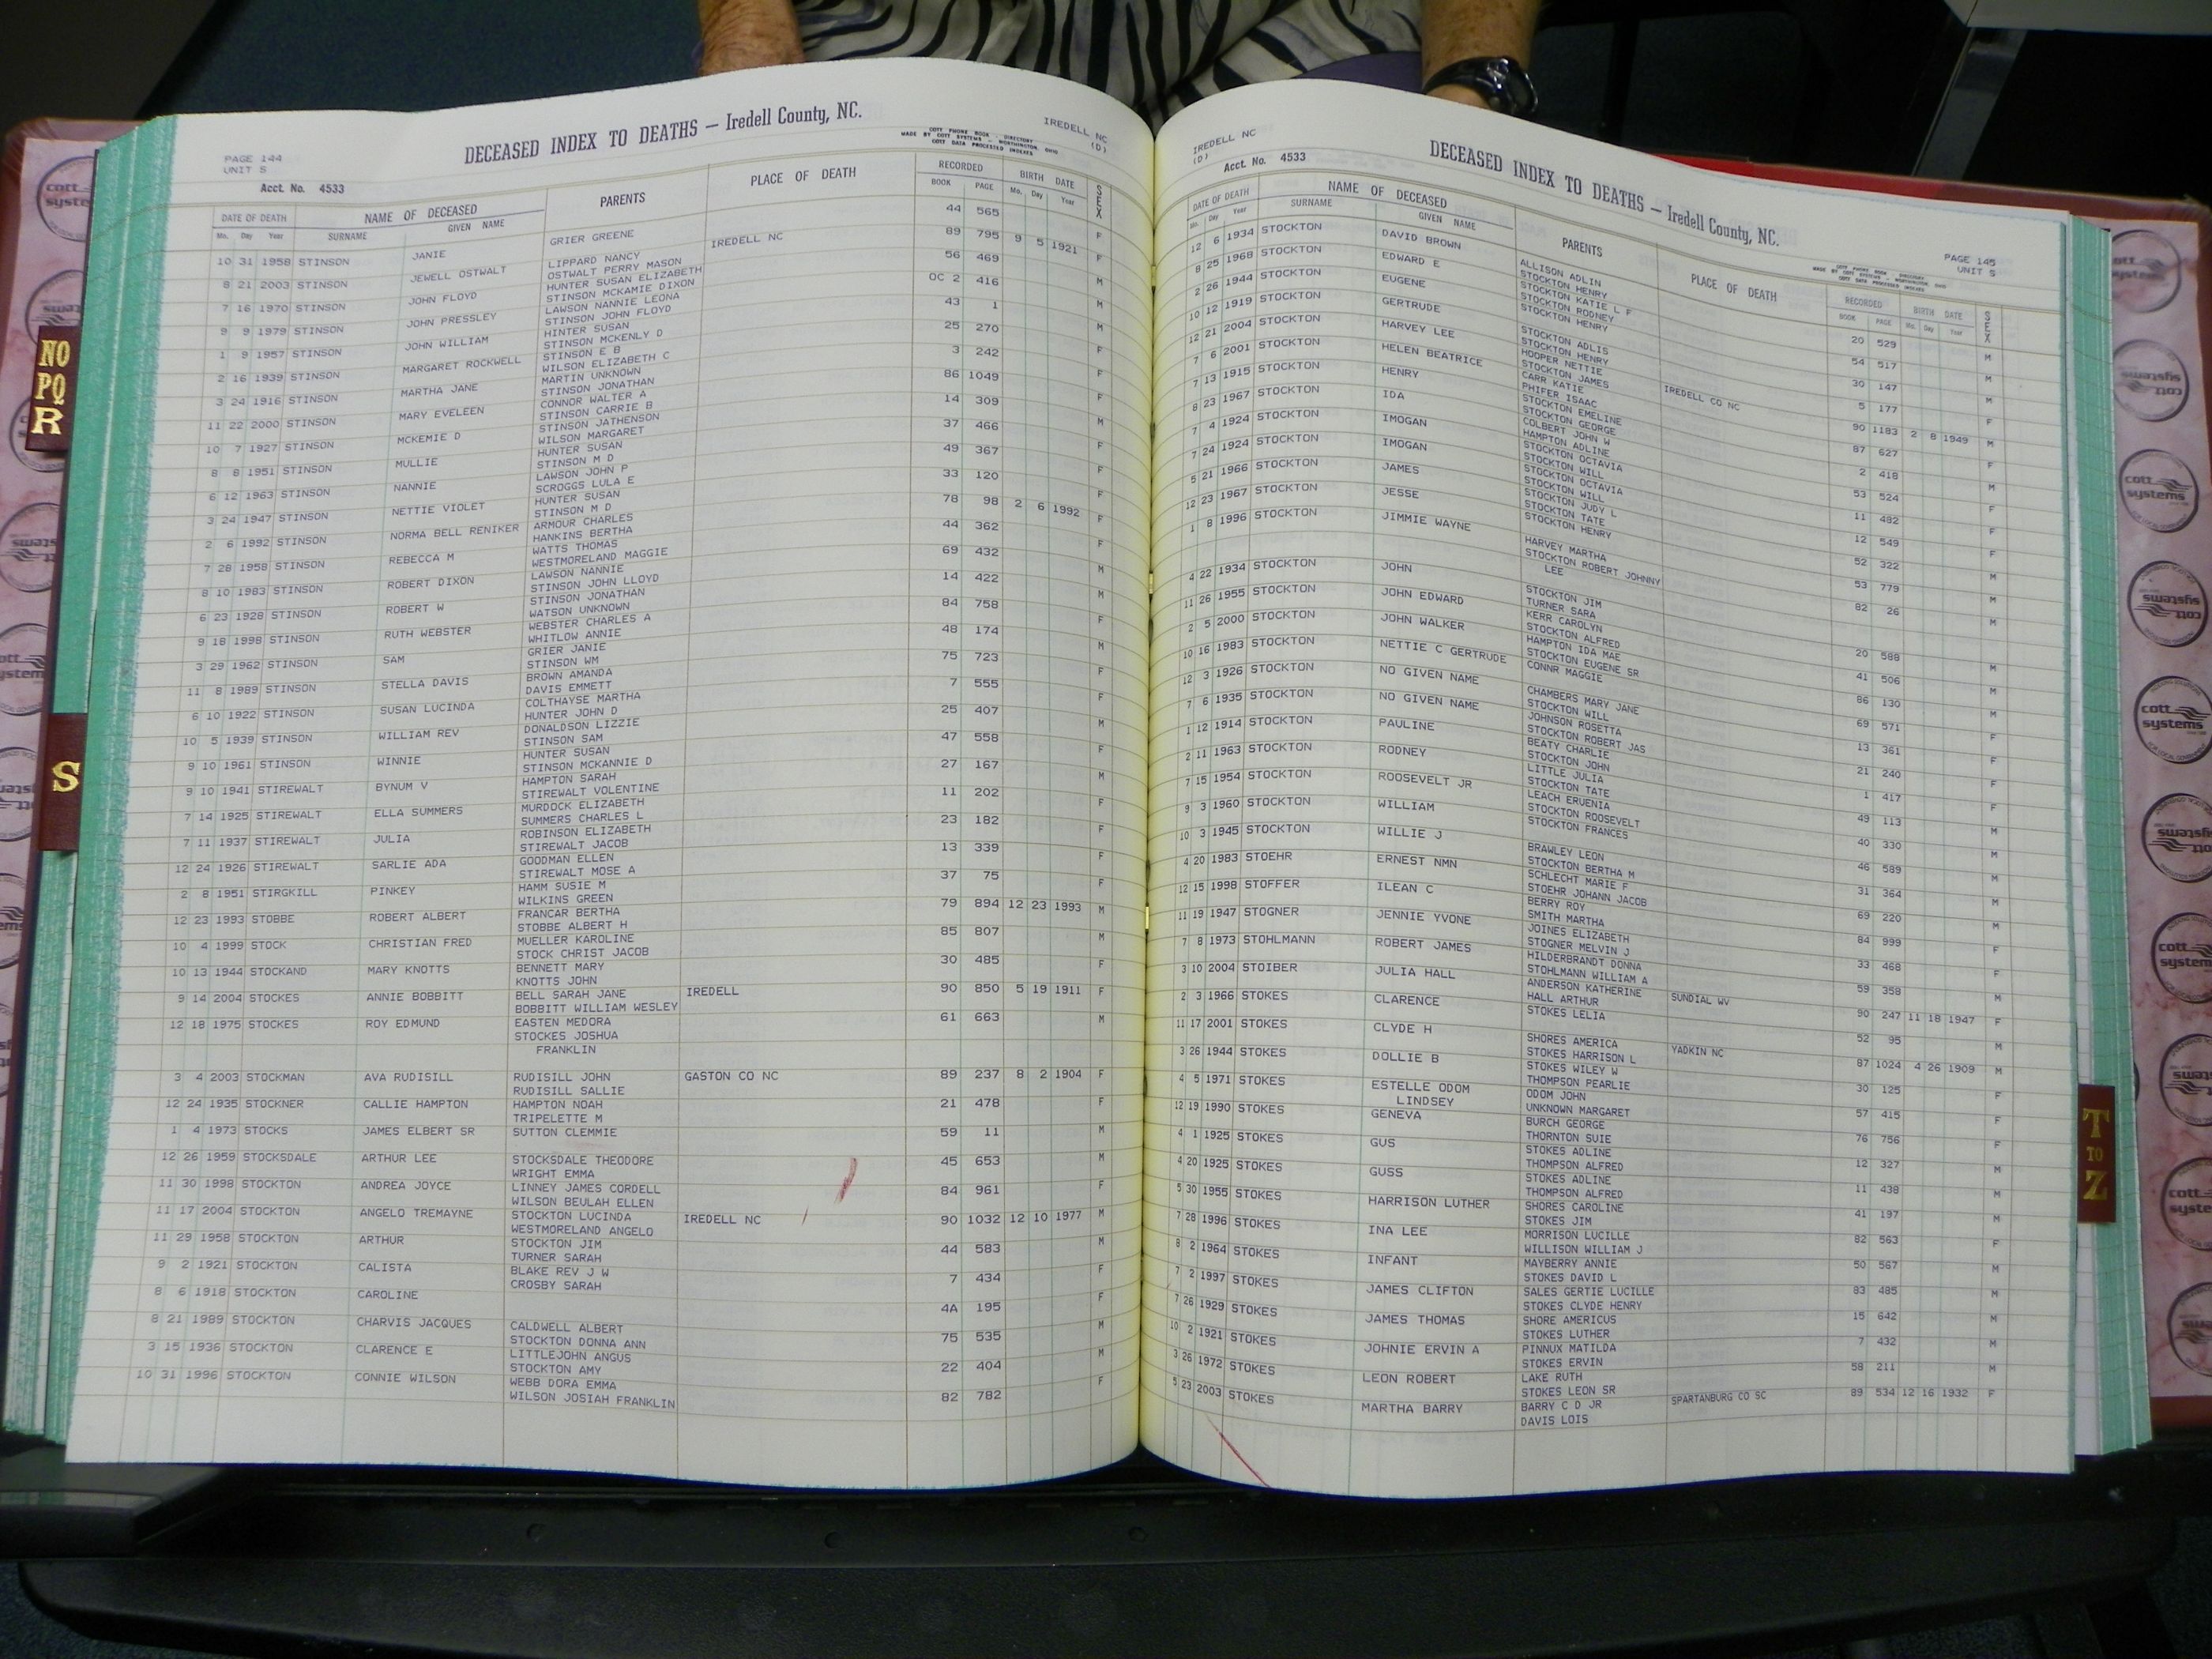 PAGE 144
UNIT S
DECEASED INDEX TO DEATHS — Iredell County, NC.
COTT PHONE BOOK - DIRECTORY
MADE BY COTT SYSTEMS - WORTHINGTON, OHIO
COTT DATA PROCESSED INDEXES
IREDELL NC
(D)
Acct. No. 4533
DATE OF DEATH NAME OF DECEASED PARENTS PLACE OF DEATH RECORDED BIRTH DATE SEX
Mo. Day Year SURNAME GIVEN NAME BOOK PAGE Mo. Day Year
10 31 1958 STINSON JANIE GRIER GREENE 44 565 F
8 21 2003 STINSON JEWELL OSTWALT LIPPARD NANCY IREDELL NC 89 795 9 5 1921 F
OSTWALT PERRY MASON
7 16 1970 STINSON JOHN FLOYD HUNTER SUSAN ELIZABETH 56 469 M
STINSON MCKAMIE DIXON
9 9 1979 STINSON JOHN PRESSLEY LAWSON NANNIE LEONA OC 2 416 M
STINSON JOHN FLOYD
1 9 1957 STINSON JOHN WILLIAM HINTER SUSAN 43 1 M
STINSON MCKENLY D
2 16 1939 STINSON MARGARET ROCKWELL STINSON E B 25 270 F
WILSON ELIZABETH C
3 24 1916 STINSON MARTHA JANE MARTIN UNKNOWN 3 242 F
STINSON JONATHAN
11 22 2000 STINSON MARY EVELEEN CONNOR WALTER A 86 1049 F
STINSON CARRIE B
10 7 1927 STINSON MCKEMIE D STINSON JATHENSON 14 309 M
WILSON MARGARET
8 8 1951 STINSON MULLIE HUNTER SUSAN 37 466 F
STINSON M D
6 12 1963 STINSON NANNIE LAWSON JOHN P 49 367 F
SCROGGS LULA E
3 24 1947 STINSON NETTIE VIOLET HUNTER SUSAN 33 120 F
STINSON M D
2 6 1992 STINSON NORMA BELL RENIKER ARMOUR CHARLES 78 98 2 6 1992 F
HANKINS BERTHA
7 28 1958 STINSON REBECCA M WATTS THOMAS 44 362 F
WESTMORELAND MAGGIE
8 10 1983 STINSON ROBERT DIXON LAWSON NANNIE 69 432 M
STINSON JOHN LLOYD
6 23 1928 STINSON ROBERT W STINSON JONATHAN 14 422 M
WATSON UNKNOWN
9 18 1998 STINSON RUTH WEBSTER WEBSTER CHARLES A 84 758 F
WHITLOW ANNIE
3 29 1962 STINSON SAM GRIER JANIE 48 174 M
STINSON WM
11 8 1989 STINSON STELLA DAVIS BROWN AMANDA 75 723 F
DAVIS EMMETT
6 10 1922 STINSON SUSAN LUCINDA COLTHAYSE MARTHA 7 555 F
HUNTER JOHN D
10 5 1939 STINSON WILLIAM REV DONALDSON LIZZIE 25 407 M
STINSON SAM
9 10 1961 STINSON WINNIE HUNTER SUSAN 47 558 F
STINSON MCKANNIE D
9 10 1941 STIREWALT BYNUM V HAMPTON SARAH 27 167 M
STIREWALT VOLENTINE
7 14 1925 STIREWALT ELLA SUMMERS MURDOCK ELIZABETH 11 202 F
SUMMERS CHARLES L
7 11 1937 STIREWALT JULIA ROBINSON ELIZABETH 23 182 F
STIREWALT JACOB
12 24 1926 STIREWALT SARLIE ADA GOODMAN ELLEN 13 339 F
STIREWALT MOSE A
2 8 1951 STIRGKILL PINKEY HAMM SUSIE M 37 75 F
WILKINS GREEN
12 23 1993 STOBBE ROBERT ALBERT FRANCAR BERTHA 79 894 12 23 1993 M
STOBBE ALBERT H
10 4 1999 STOCK CHRISTIAN FRED MUELLER KAROLINE 85 807 M
STOCK CHRIST JACOB
10 13 1944 STOCKAND MARY KNOTTS BENNETT MARY 30 485 F
KNOTTS JOHN
9 14 2004 STOCKES ANNIE BOBBITT BELL SARAH JANE IREDELL 90 850 5 19 1911 F
BOBBITT WILLIAM WESLEY
12 18 1975 STOCKES ROY EDMUND EASTEN MEDORA 61 663 M
STOCKES JOSHUA
FRANKLIN
3 4 2003 STOCKMAN AVA RUDISILL RUDISILL JOHN GASTON CO NC 89 237 8 2 1904 F
RUDISILL SALLIE
12 24 1935 STOCKNER CALLIE HAMPTON HAMPTON NOAH 21 478 F
TRIPELETTE M
1 4 1973 STOCKS JAMES ELBERT SR SUTTON CLEMMIE 59 11 M
12 26 1959 STOCKSDALE ARTHUR LEE STOCKSDALE THEODORE 45 653 M
WRIGHT EMMA
11 30 1998 STOCKTON ANDREA JOYCE LINNEY JAMES CORDELL 84 961 F
WILSON BEULAH ELLEN
11 17 2004 STOCKTON ANGELO TREMAYNE STOCKTON LUCINDA IREDELL NC 90 1032 12 10 1977 M
WESTMORELAND ANGELO
11 29 1958 STOCKTON ARTHUR STOCKTON JIM 44 583 M
TURNER SARAH
9 2 1921 STOCKTON CALISTA BLAKE REV J W 7 434 F
CROSBY SARAH
8 6 1918 STOCKTON CAROLINE 4A 195 F
8 21 1989 STOCKTON CHARVIS JACQUES CALDWELL ALBERT 75 535 M
STOCKTON DONNA ANN
3 15 1936 STOCKTON CLARENCE E LITTLEJOHN ANGUS 22 404 M
STOCKTON AMY
10 31 1996 STOCKTON CONNIE WILSON WEBB DORA EMMA 82 782 F
WILSON JOSIAH FRANKLIN
IREDELL NC
(D)
DECEASED INDEX TO DEATHS — Iredell County, NC.
COTT PHONE BOOK - DIRECTORY
MADE BY COTT SYSTEMS - WORTHINGTON, OHIO
COTT DATA PROCESSED INDEXES
PAGE 145
UNIT S
Acct. No. 4533
DATE OF DEATH NAME OF DECEASED PARENTS PLACE OF DEATH RECORDED BIRTH DATE SEX
Mo. Day Year SURNAME GIVEN NAME BOOK PAGE Mo. Day Year
12 6 1934 STOCKTON DAVID BROWN ALLISON ADLIN 20 529 M
STOCKTON HENRY
8 25 1968 STOCKTON EDWARD E STOCKTON KATIE L F 54 517 M
STOCKTON RODNEY
2 26 1944 STOCKTON EUGENE STOCKTON HENRY 30 147 M
10 12 1919 STOCKTON GERTRUDE STOCKTON ADLIS 5 177 F
STOCKTON HENRY
12 21 2004 STOCKTON HARVEY LEE HOOPER NETTIE IREDELL CO NC 90 1183 2 8 1949 M
STOCKTON JAMES
7 6 2001 STOCKTON HELEN BEATRICE CARR KATIE 87 627 F
PHIFER ISAAC
7 13 1915 STOCKTON HENRY STOCKTON EMELINE 2 418 M
STOCKTON GEORGE
8 23 1967 STOCKTON IDA COLBERT JOHN W 53 524 F
HAMPTON ADLINE
7 4 1924 STOCKTON IMOGAN STOCKTON OCTAVIA 11 482 F
STOCKTON WILL
7 24 1924 STOCKTON IMOGAN STOCKTON OCTAVIA 12 549 F
STOCKTON WILL
5 21 1966 STOCKTON JAMES STOCKTON JUDY L 52 322 M
STOCKTON TATE
12 23 1967 STOCKTON JESSE STOCKTON HENRY 53 779 M
1 8 1996 STOCKTON JIMMIE WAYNE HARVEY MARTHA 82 26 M
STOCKTON ROBERT JOHNNY
LEE
4 22 1934 STOCKTON JOHN STOCKTON JIM 20 588 M
TURNER SARA
11 26 1955 STOCKTON JOHN EDWARD KERR CAROLYN 41 506 M
STOCKTON ALFRED
2 5 2000 STOCKTON JOHN WALKER HAMPTON IDA MAE 86 130 M
STOCKTON EUGENE SR
10 16 1983 STOCKTON NETTIE C GERTRUDE CONNR MAGGIE 69 571 F
12 3 1926 STOCKTON NO GIVEN NAME CHAMBERS MARY JANE 13 361 F
STOCKTON WILL
7 6 1935 STOCKTON NO GIVEN NAME JOHNSON ROSETTA 21 240 F
STOCKTON ROBERT JAS
1 12 1914 STOCKTON PAULINE BEATY CHARLIE 1 417 F
STOCKTON JOHN
2 11 1963 STOCKTON RODNEY LITTLE JULIA 49 113 M
STOCKTON TATE
7 15 1954 STOCKTON ROOSEVELT JR LEACH ERUENIA 40 330 M
STOCKTON ROOSEVELT
9 3 1960 STOCKTON WILLIAM STOCKTON FRANCES 46 589 M
10 3 1945 STOCKTON WILLIE J BRAWLEY LEON 31 364 M
STOCKTON BERTHA M
4 20 1983 STOEHR ERNEST NMN SCHLECHT MARIE F 69 220 M
STOEHR JOHANN JACOB
12 15 1998 STOFFER ILEAN C BERRY ROY 84 999 F
SMITH MARTHA
11 19 1947 STOGNER JENNIE YVONE JOINES ELIZABETH 33 468 F
STOGNER MELVIN J
7 8 1973 STOHLMANN ROBERT JAMES HILDERBRANDT DONNA 59 358 M
STOHLMANN WILLIAM A
3 10 2004 STOIBER JULIA HALL ANDERSON KATHERINE SUNDIAL WV 90 247 11 18 1947 F
HALL ARTHUR
2 3 1966 STOKES CLARENCE STOKES LELIA 52 95 M
11 17 2001 STOKES CLYDE H SHORES AMERICA YADKIN NC 87 1024 4 26 1909 M
STOKES HARRISON L
3 26 1944 STOKES DOLLIE B STOKES WILEY W 30 125 F
THOMPSON PEARLIE
4 5 1971 STOKES ESTELLE ODOM ODOM JOHN 57 415 F
LINDSEY UNKNOWN MARGARET
12 19 1990 STOKES GENEVA BURCH GEORGE 76 756 F
THORNTON SUIE
4 1 1925 STOKES GUS STOKES ADLINE 12 327 M
THOMPSON ALFRED
4 20 1925 STOKES GUSS STOKES ADLINE 11 438 M
THOMPSON ALFRED
5 30 1955 STOKES HARRISON LUTHER SHORES CAROLINE 41 197 M
STOKES JIM
7 28 1996 STOKES INA LEE MORRISON LUCILLE 82 563 F
WILLISON WILLIAM J
8 2 1964 STOKES INFANT MAYBERRY ANNIE 50 567 M
STOKES DAVID L
7 2 1997 STOKES JAMES CLIFTON SALES GERTIE LUCILLE 83 485 M
STOKES CLYDE HENRY
7 26 1929 STOKES JAMES THOMAS SHORE AMERICUS 15 642 M
STOKES LUTHER
10 2 1921 STOKES JOHNIE ERVIN A PINNUX MATILDA 7 432 M
STOKES ERVIN
3 26 1972 STOKES LEON ROBERT LAKE RUTH 58 211 M
STOKES LEON SR
5 23 2003 STOKES MARTHA BARRY BARRY C D JR SPARTANBURG CO SC 89 534 12 16 1932 F
DAVIS LOIS
NO
PQ
R
S
T
TO
Z
cott
systems